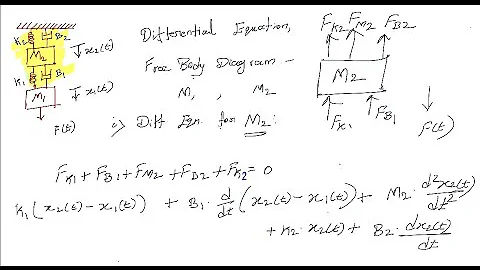 K2 B2
M2
↓ x2(t)
K1 B1
M1
↓ x1(t)
↓ F(t)
Differential Equation,
Free Body Diagram -
M1 M2
i> Diff Eqn. for M2:
FK2 FM2 FB2
M2
FK1 FB1
F(t)
FK1 + FB1 + FM2 + FB2 + FK2 = 0
K1 (x2(t) - x1(t)) + B1 · d/dt (x2(t) - x1(t)) + M2 · d²x2(t)/dt²
+ K2 · x2(t) + B2 · dx2(t)/dt